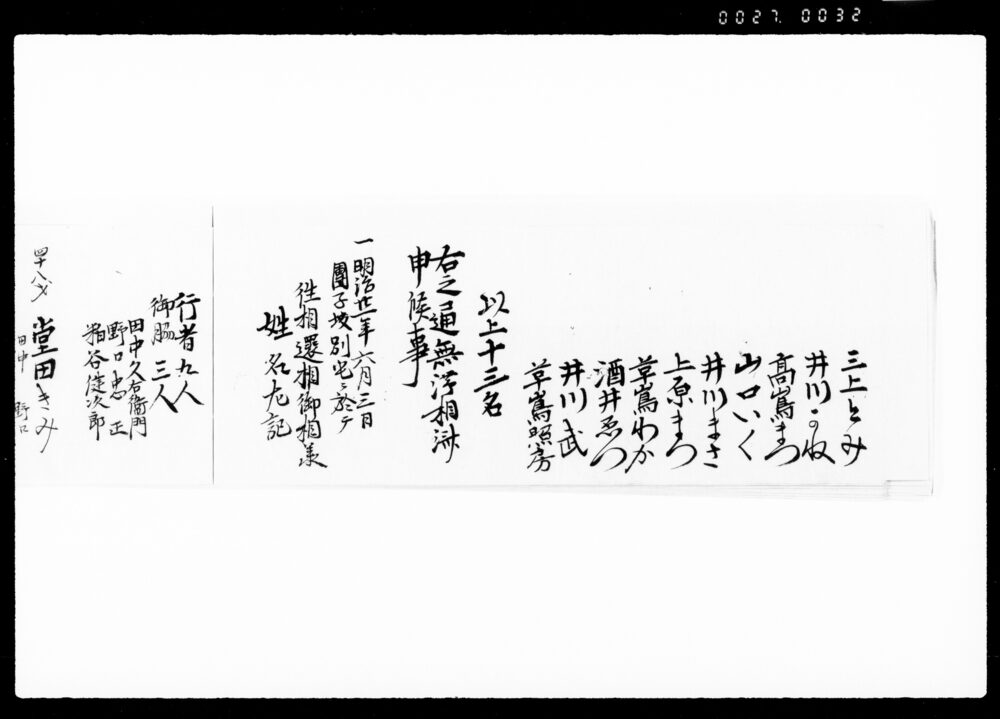 0027 0032
三上とみ
井川かね
髙嶌まつ
山口いく
井川まさ
上原まつ
草嶌わか
酒井ゑつ
井川武
草嶌照房
以上十三名
右之通無滞相済
申候事
一明治廿一年六月三日
團子坂別宅ニ於テ
往相還相御相承
姓名左記
行者九人
御脇三人
田中久右衛門
野口忠正
谷徒次郎
四十八才
堂田きみ
田中 野口